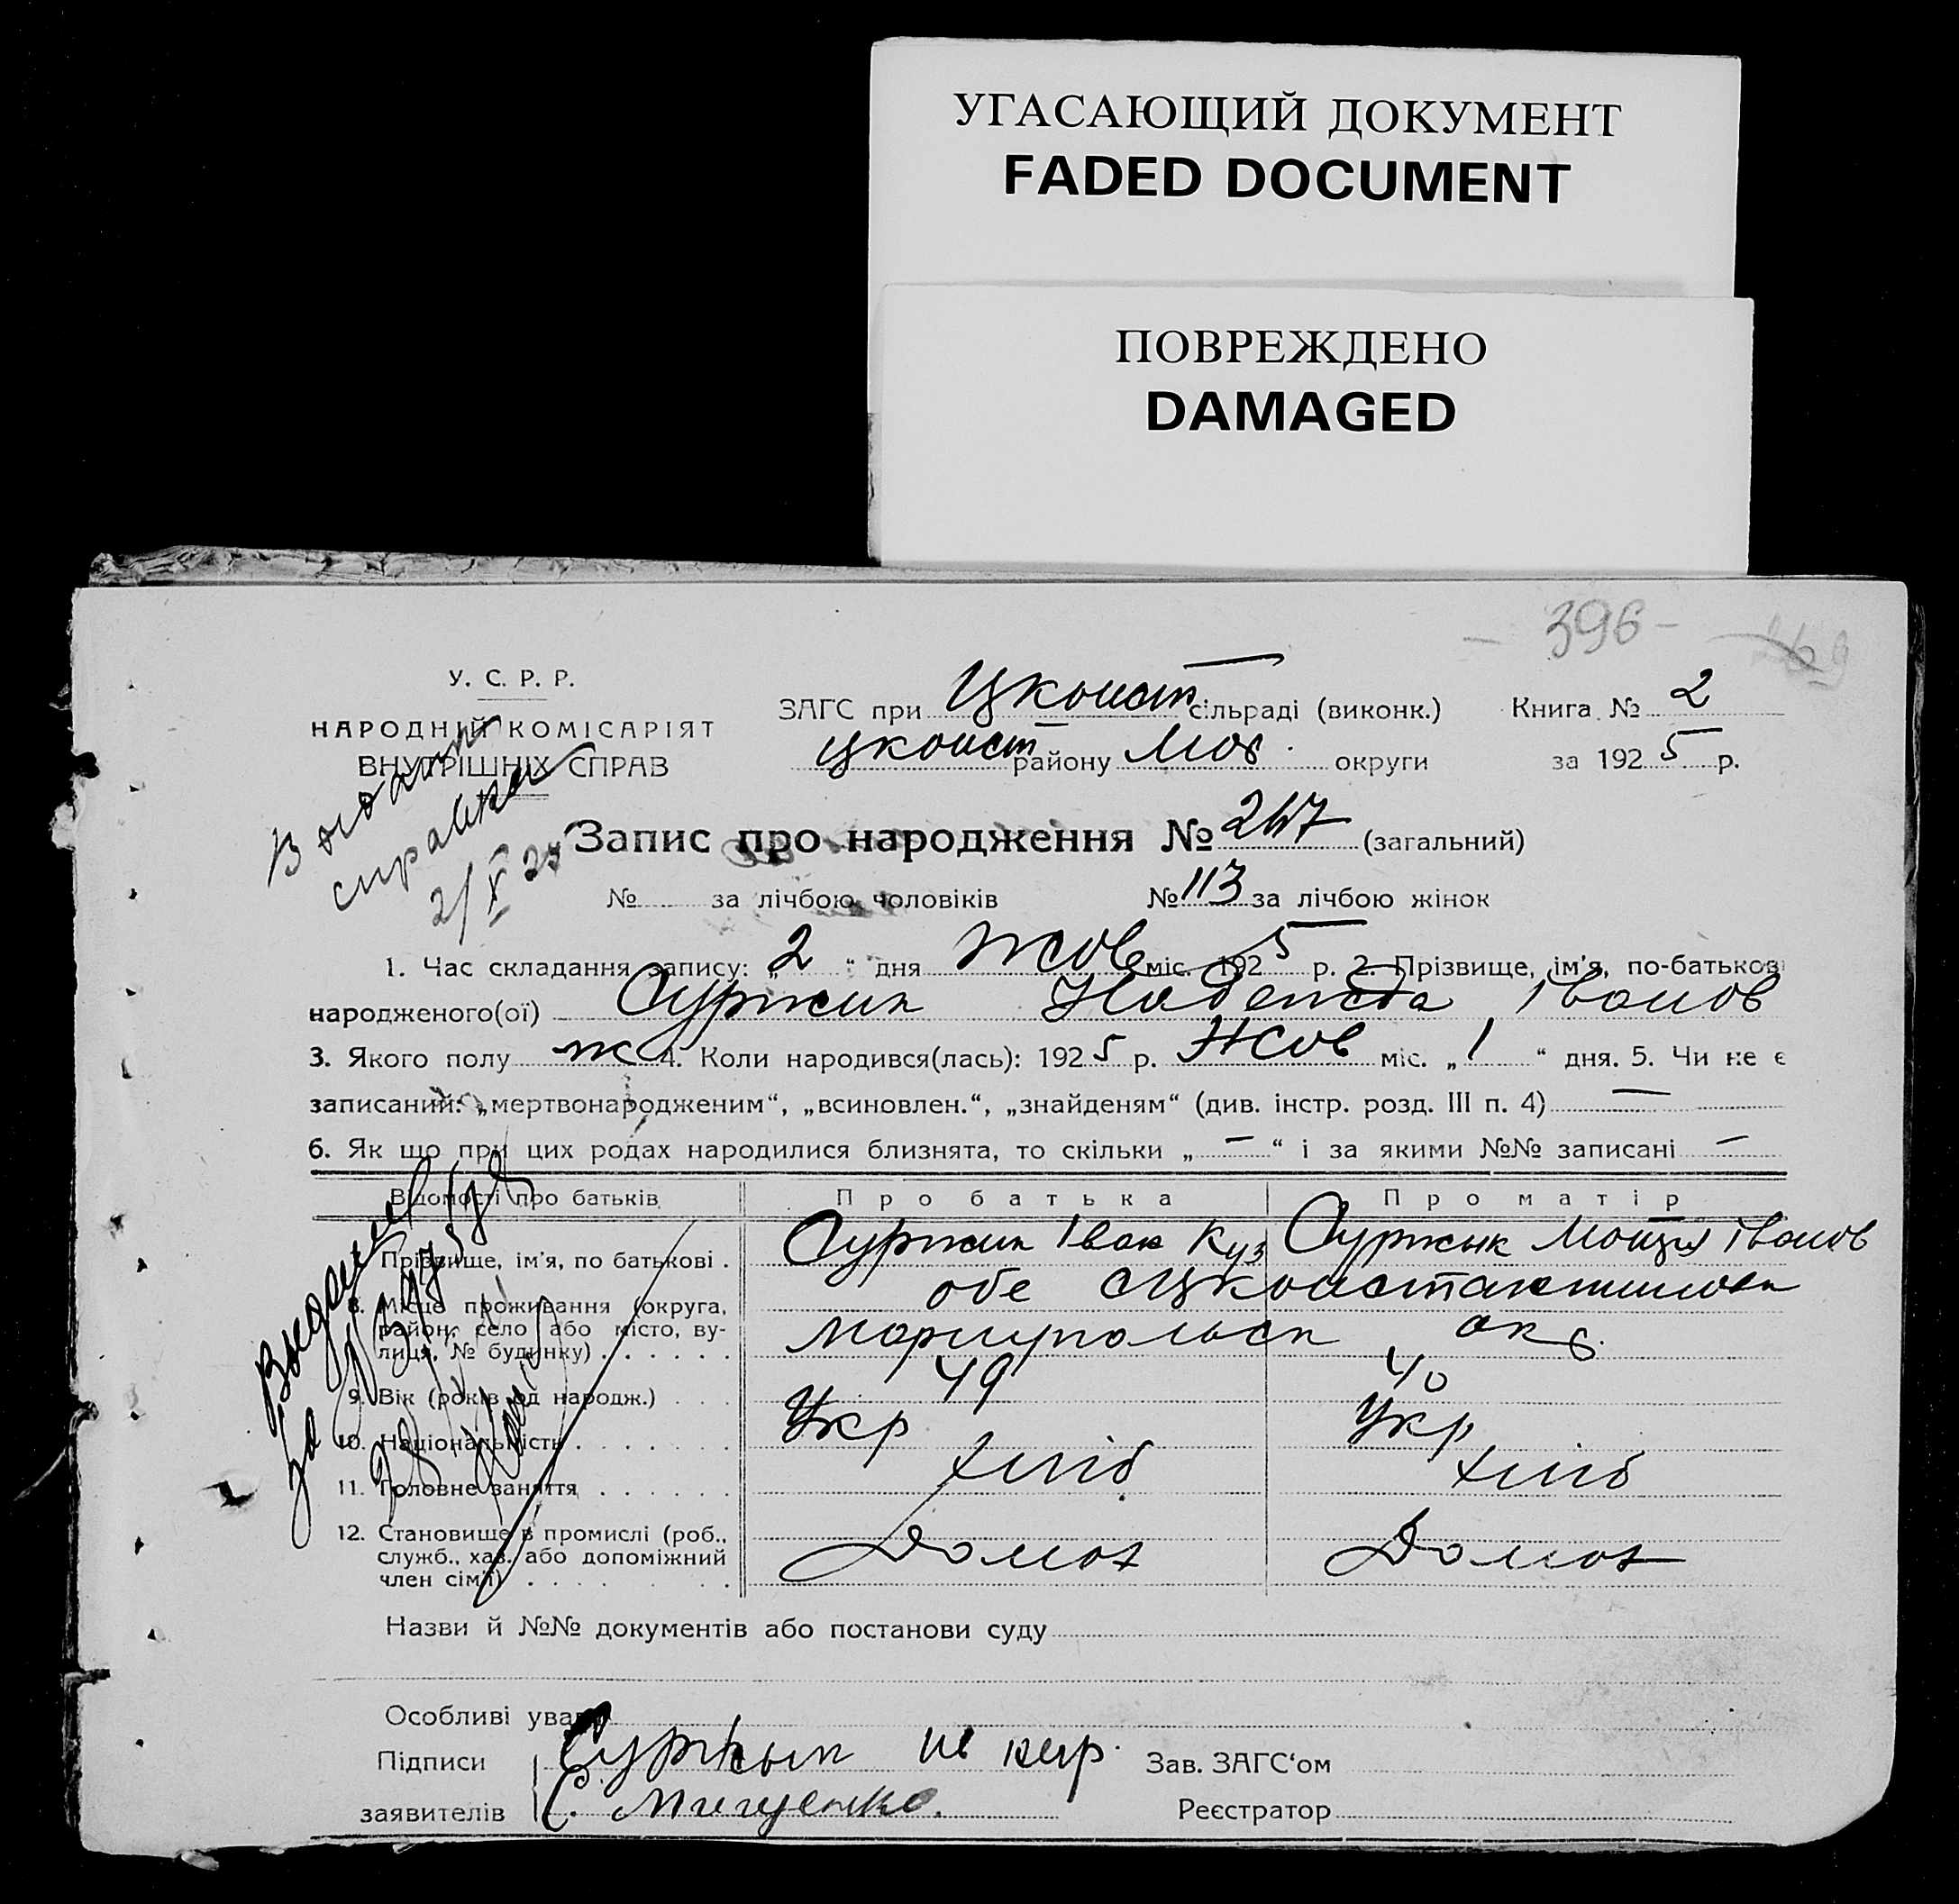 УГАСАЮЩИЙ ДОКУМЕНТ
FADED DOCUMENT
ПОВРЕЖДЕНО
DAMAGED
- 396 -
У. С. Р. Р.
НАРОДНІЙ КОМІСАРІЯТ
ВНУТРІШНІХ СПРАВ
ЗАГС при Цконст сільраді (виконк.) Книга № 2
Цконст району Мар. округи за 1925 р.
справка
2/X 25
Запис про народження № 247 (загальний)
№ за лічбою чоловіків № 113 за лічбою жінок
1. Час складання запису: „2“ дня Жов міс. 1925 р. 2. Прізвище, ім'я, по-батькові
народженого(ої) Суржик Надежда Іванов
3. Якого полу ж 4. Коли народився(лась): 1925 р. Жов міс. „1“ дня. 5. Чи не є
записаний: „мертвонародженим“, „всиновлен.“, „знайденям“ (див. інстр. розд. III п. 4) —
6. Як що при цих родах народилися близнята, то скільки „—“ і за якими №№ записані —
Відомості про батьків Про батька Про матір
Прізвище, ім'я, по батькові . Суржик Іван Куз Суржик Іванов
8. Місце проживання (округа, район, село або місто, вулиця, № будинку) . . . . . . обе
Мариупольск окр.
9. Вік (років од народж.) . . . 49 40
10. Національність . . . . . . . Укр Укр
11. Головне заняття . . . . . . хліб хліб
12. Становище в промислі (роб., служб., хаз. або допоміжний член сім'ї) . . . . . . . Домох Домох
Назви й №№ документів або постанови суду
Особливі уваги
Підписи Суржык Зав. ЗАГС'ом
заявителів С. Реєстратор